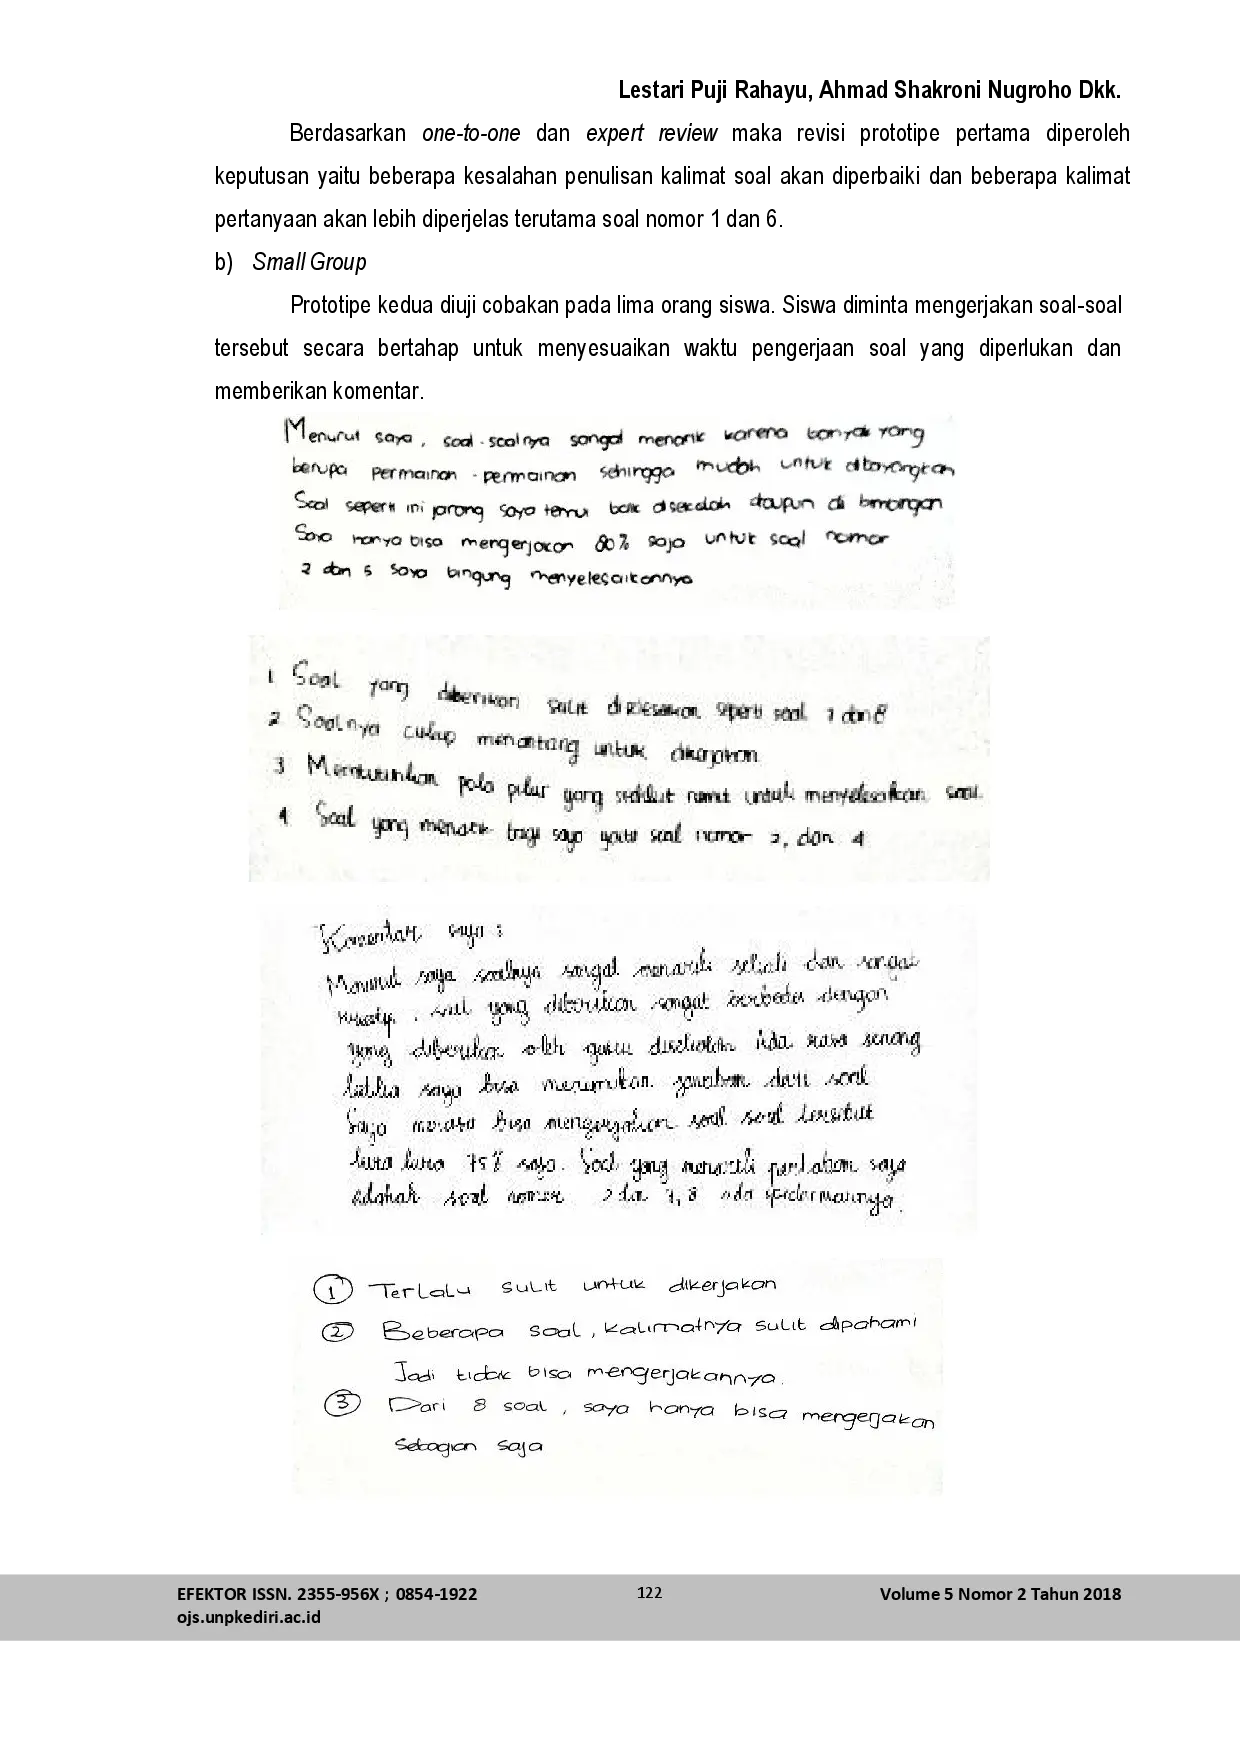 Lestari Puji Rahayu, Ahmad Shakroni Nugroho Dkk.
Berdasarkan one-to-one dan expert review maka revisi prototipe pertama diperoleh
keputusan yaitu beberapa kesalahan penulisan kalimat soal akan diperbaiki dan beberapa kalimat
pertanyaan akan lebih diperjelas terutama soal nomor 1 dan 6.
b) Small Group
Prototipe kedua diuji cobakan pada lima orang siswa. Siswa diminta mengerjakan soal-soal
tersebut secara bertahap untuk menyesuaikan waktu pengerjaan soal yang diperlukan dan
memberikan komentar.
Menurut saya, soal-soalnya sangat menarik karena banyak yang
berupa permainan-permainan sehingga mudah untuk dibayangkan
Soal seperti ini jarang saya temui baik disekolah ataupun di bimbingan
Saya hanya bisa mengerjakan 80% saja untuk soal nomor
2 dan 5 saya bingung menyelesaikannya
1 Soal yang diberikan sulit seperti soal 7 dan 8
2 Soalnya cukup menantang untuk dikerjakan
3 Membutuhkan pola pikir yang sedikit rumit untuk menyelesaikan soal
4 Soal yang menarik bagi saya yaitu soal nomor 2, dan 4
Komentar saya :
Menurut saya soalnya sangat menarik sekali dan sangat
kreatif, soal yang diberikan sangat berbeda dengan
yang diberikan oleh guru disekolah Ada rasa senang
ketika saya bisa menemukan jawaban dari soal
Saya merasa bisa mengerjakan soal soal tersebut
kira kira 75% saja. Soal yang menarik saya
adalah soal nomer 7, 8 ada spidermannya.
1 Terlalu sulit untuk dikerjakan
2 Beberapa soal, kalimatnya sulit dipahami
Jadi tidak bisa mengerjakannya.
3 Dari 8 soal, saya hanya bisa mengerjakan
sebagian saja
EFEKTOR ISSN. 2355-956X ; 0854-1922 122 Volume 5 Nomor 2 Tahun 2018
ojs.unpkediri.ac.id